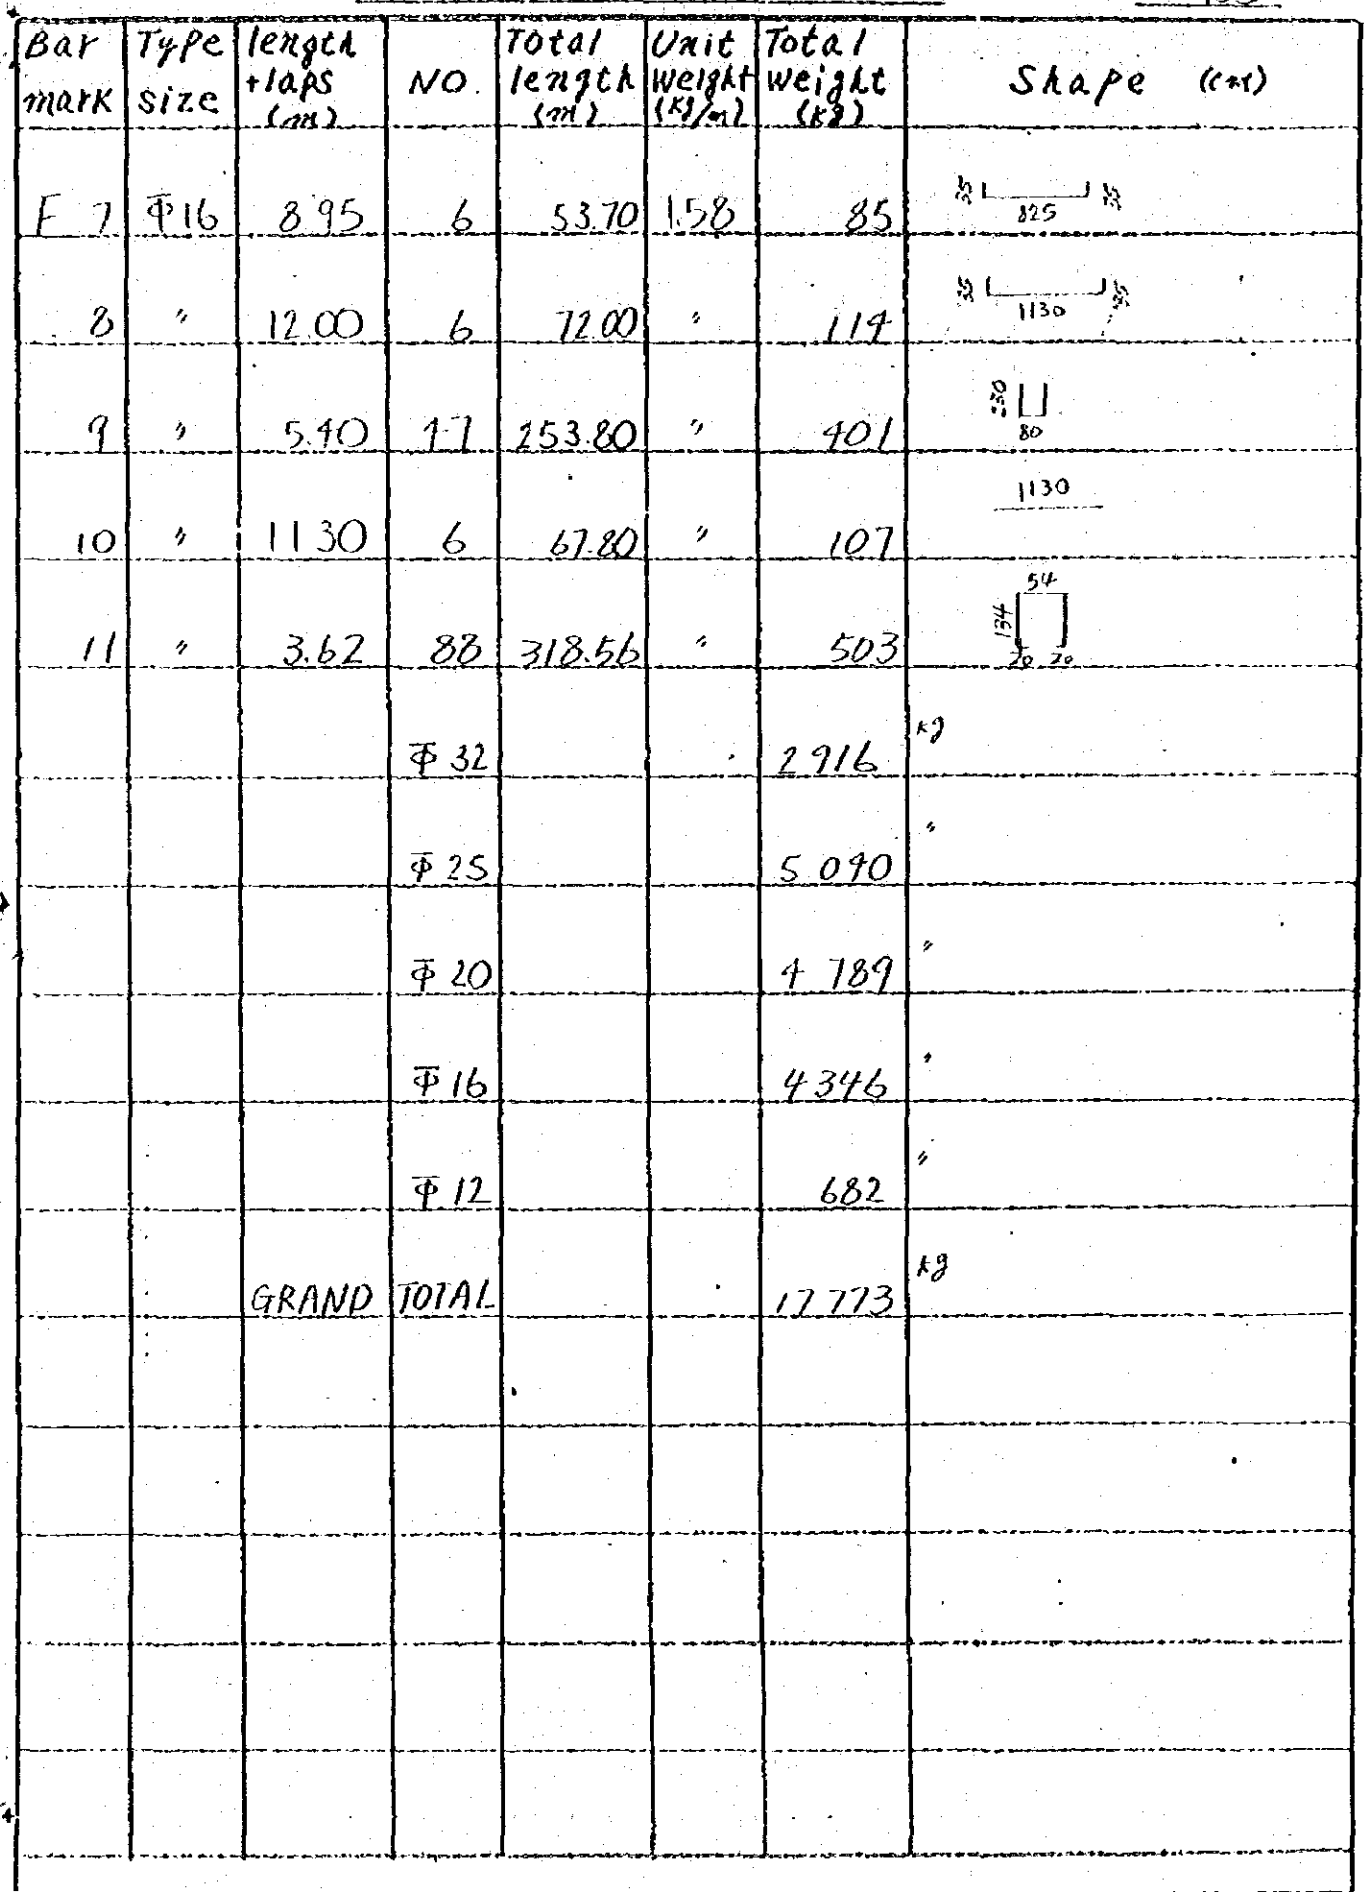 Bar mark Type size length +laps (m) NO. Total length (m) Unit weight (kg/m) Total weight (kg) Shape (cm)
F 7 Φ16 8.95 6 53.70 1.58 85 35 825 35
8 〃 12.00 6 72.00 〃 114 35 1130 35
9 〃 5.40 47 253.80 〃 401 230 80
10 〃 11.30 6 67.80 〃 107 1130
11 〃 3.62 88 318.56 〃 503 54 134 20 20
Φ 32 2916 kg
Φ 25 5 040 〃
Φ 20 4 789 〃
Φ 16 4346 〃
Φ 12 682 〃
GRAND TOTAL 17 773 kg